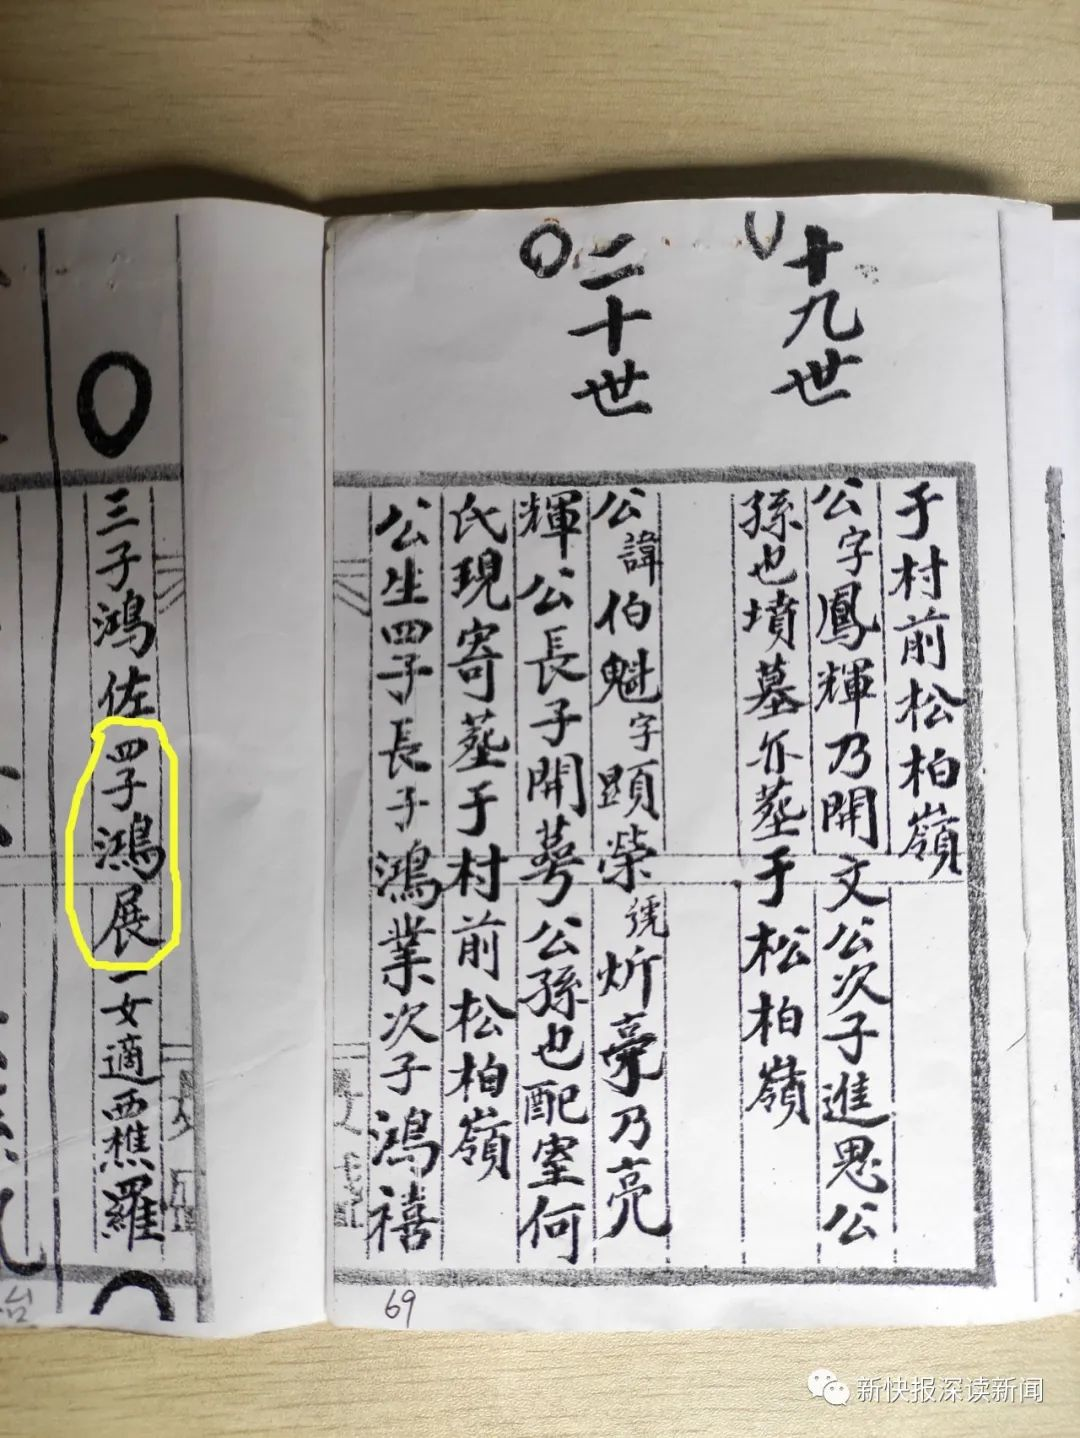 十九世
二十世
于村前松柏嶺
公字鳳輝乃開文公次子進思公
孫也墳墓亦塟于松柏嶺
公諱伯魁字顕榮號炘毫乃亮
輝公長子開萼公孫也配室何
氏現寄塟于村前松柏嶺
公生四子長子鴻業次子鴻禧
69
三子鴻佐四子鴻展一女適西樵羅
新快报深读新闻